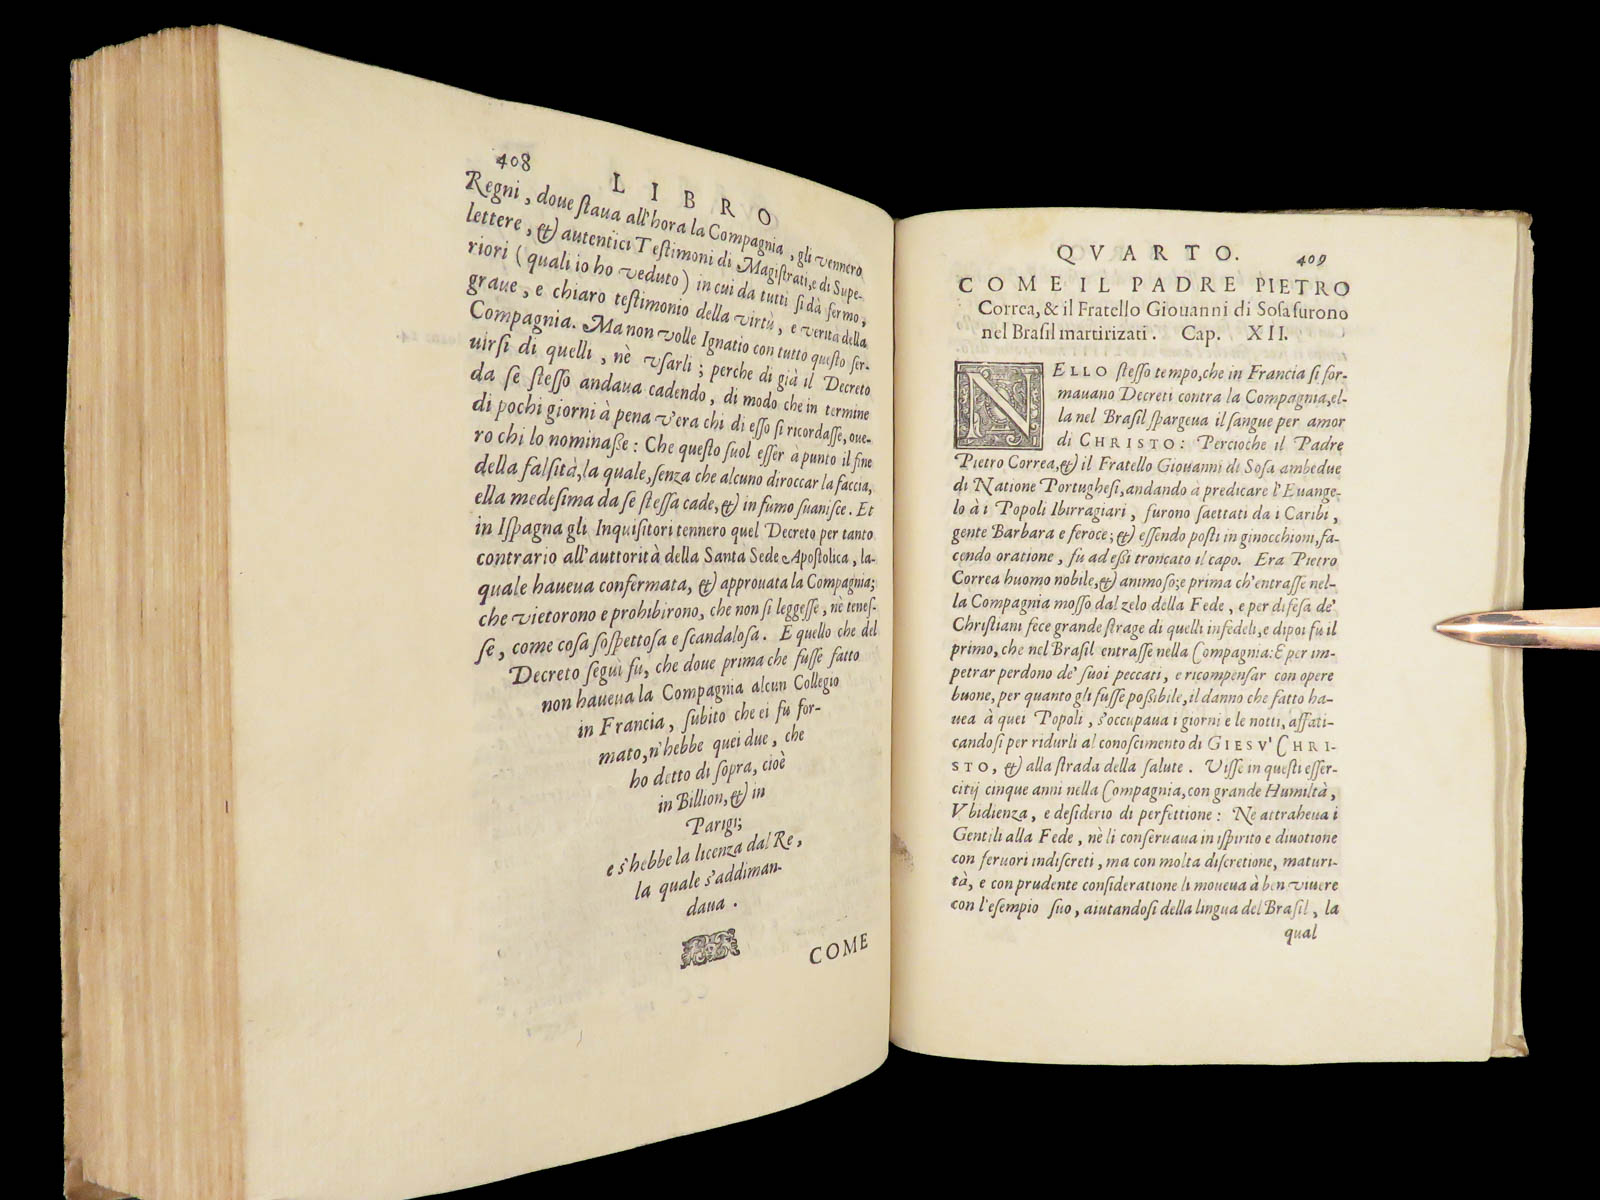 408
LIBRO
Regni, doue ſtaua all'hora la Compagnia, gli vennero
lettere, & autentici Teſtimoni di Magiſtrati, e di Supe-
riori (quali io ho veduto) in cui da tutti ſi dà fermo,
graue, e chiaro teſtimonio della virtù, e verità della
Compagnia. Ma non volle Ignatio con tutto queſto ſer-
uirſi di quelli, nè vſarli; perche di già il Decreto
da ſe ſteſſo andaua cadendo, di modo che in termine
di pochi giorni à pena v'era chi di eſſo ſi ricordaſſe, oue-
ro chi lo nominaſſe: Che queſto ſuol eſſer à punto il fine
della falſità, la quale, ſenza che alcuno diroccar la faccia,
ella medeſima da ſe ſteſſa cade, & in fumo ſuaniſce. Et
in Iſpagna gli Inquiſitori tennero quel Decreto per tanto
contrario all'auttorità della Santa Sede Apoſtolica, la-
quale haueua confermata, & approuata la Compagnia;
che vietorono e prohibirono, che non ſi leggeſſe, nè teneſ-
ſe, come coſa ſoſpettoſa e ſcandaloſa. E quello che del
Decreto ſeguì fu, che doue prima che fuſſe fatto
non haueua la Compagnia alcun Collegio
in Francia, ſubito che ei fu for-
mato, n'hebbe quei due, che
ho detto di ſopra, cioè
in Billion, & in
Parigi;
e s'hebbe la licenza dal Re,
la quale s'addiman-
daua.
COME
QVARTO.
409
COME IL PADRE PIETRO
Correa, & il Fratello Giouanni di Soſa furono
nel Braſil martirizati. Cap. XII.
NELLO ſteſſo tempo, che in Francia ſi for-
mauano Decreti contra la Compagnia, el-
la nel Braſil ſpargeua il ſangue per amor
di CHRISTO: Percioche il Padre
Pietro Correa, & il Fratello Giouanni di Soſa ambedue
di Natione Portugheſi, andando à predicare l'Euange-
lo à i Popoli Ibirragiari, furono ſaettati da i Caribi,
gente Barbara e feroce; & eſſendo poſti in ginocchioni, fa-
cendo oratione, fu ad eſſi troncato il capo. Era Pietro
Correa huomo nobile, & animoſo; e prima ch'entraſſe nel-
la Compagnia moſſo dal zelo della Fede, e per difeſa de'
Chriſtiani fece grande ſtrage di quelli infedeli, e dipoi fu il
primo, che nel Braſil entraſſe nella Compagnia: E per im-
petrar perdono de' ſuoi peccati, e ricompenſar con opere
buone, per quanto gli fuſſe poſſibile, il danno che fatto ha-
uea à quei Popoli, s'occupaua i giorni e le notti, affati-
candoſi per ridurli al conoſcimento di GIESV' CHRI-
STO, & alla ſtrada della ſalute. Viſſe in queſti eſſer-
citij cinque anni nella Compagnia, con grande Humiltà,
Vbidienza, e deſiderio di perfettione: Ne attraheua i
Gentili alla Fede, nè li conſeruaua in iſpirito e diuotione
con feruori indiſcreti, ma con molta diſcretione, maturi-
tà, e con prudente conſideratione li moueua à ben viuere
con l'eſempio ſuo, aiutandoſi della lingua del Braſil, la
qual